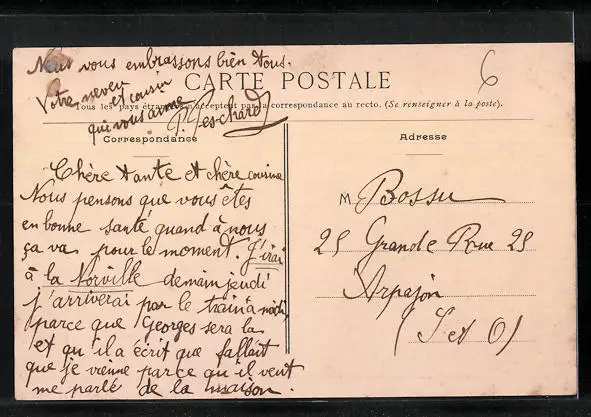 Nous vous embrassons bien tous.
Votre neveu
et cousin
qui vous aime
CARTE POSTALE
Tous les pays étrangers n'acceptent pas la correspondance au recto. (Se renseigner à la poste).
6
Correspondance
Adresse
Chère tante et chère cousine
Nous pensons que vous êtes
en bonne santé quand à nous
ça va pour le moment. J'irai
à la Norville demain jeudi
j'arriverai par le train à midi,
parce que Georges sera la
et qu'il a écrit que fallait
que je vienne parce qu'il veut
me parlé de la maison.
M Bossu
25 Grande Rue 25
Arpajon
(S et O)